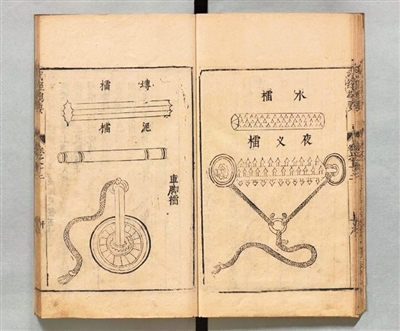 木檑
夜叉檑
磚檑
泥檑
車脚檑